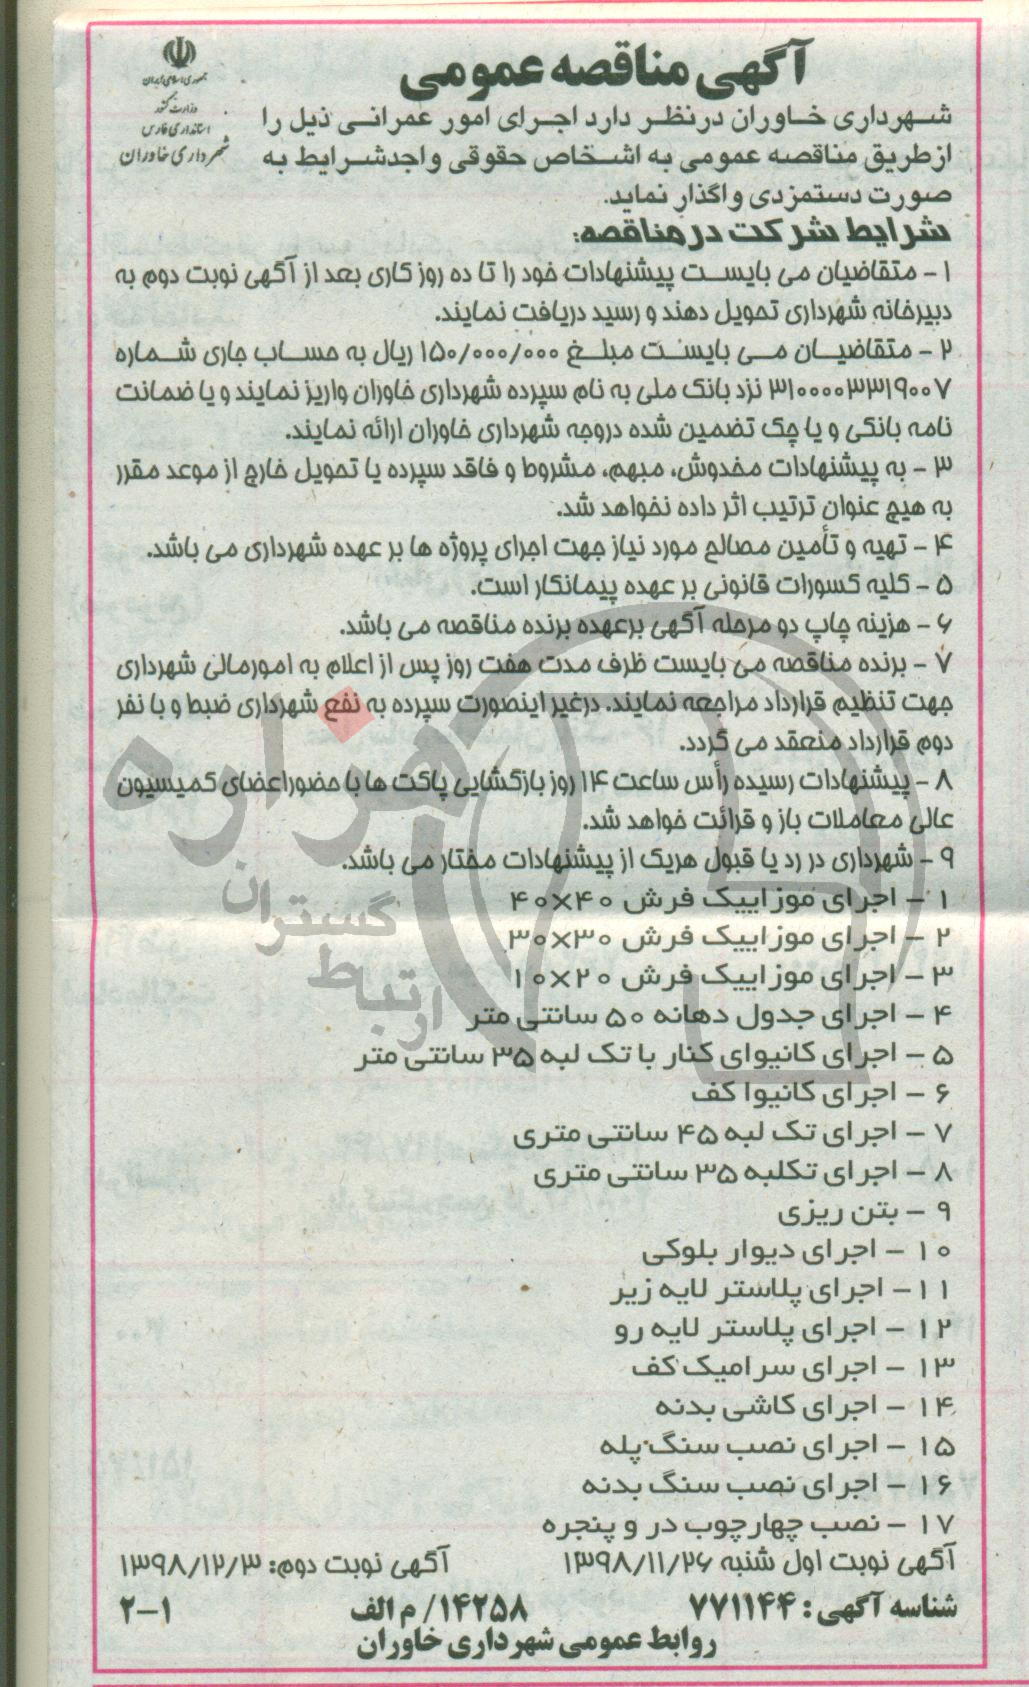 آگهی مناقصه عمومی
جمهوری اسلامی ایران
وزارت کشور
استانداری فارس
شهرداری خاوران
شهرداری خاوران درنظر دارد اجرای امور عمرانی ذیل را
ازطریق مناقصه عمومی به اشخاص حقوقی واجدشرایط به
صورت دستمزدی واگذار نماید.
شرایط شرکت در مناقصه:
۱ - متقاضیان می بایست پیشنهادات خود را تا ده روز کاری بعد از آگهی نوبت دوم به
دبیرخانه شهرداری تحویل دهند و رسید دریافت نمایند.
۲ - متقاضیان می بایست مبلغ ۱۵۰/۰۰۰/۰۰۰ ریال به حساب جاری شماره
۳۱۰۰۰۰۳۳۱۹۰۰۷ نزد بانک ملی به نام سپرده شهرداری خاوران واریز نمایند و یا ضمانت
نامه بانکی و یا چک تضمین شده دروجه شهرداری خاوران ارائه نمایند.
۳ - به پیشنهادات مخدوش، مبهم، مشروط و فاقد سپرده یا تحویل خارج از موعد مقرر
به هیچ عنوان ترتیب اثر داده نخواهد شد.
۴ - تهیه و تأمین مصالح مورد نیاز جهت اجرای پروژه ها بر عهده شهرداری می باشد.
۵ - کلیه کسورات قانونی بر عهده پیمانکار است.
۶ - هزینه چاپ دو مرحله آگهی برعهده برنده مناقصه می باشد.
۷ - برنده مناقصه می بایست ظرف مدت هفت روز پس از اعلام به امورمالی شهرداری
جهت تنظیم قرارداد مراجعه نمایند. درغیر اینصورت سپرده به نفع شهرداری ضبط و با نفر
دوم قرارداد منعقد می گردد.
۸ - پیشنهادات رسیده رأس ساعت ۱۴ روز بازگشایی پاکت ها با حضوراعضای کمیسیون
عالی معاملات باز و قرائت خواهد شد.
۹ - شهرداری در رد یا قبول هریک از پیشنهادات مختار می باشد.
۱ - اجرای موزاییک فرش ۴۰×۴۰
۲ - اجرای موزاییک فرش ۳۰×۳۰
۳ - اجرای موزاییک فرش ۲۰×۱۰
۴ - اجرای جدول دهانه ۵۰ سانتی متر
۵ - اجرای کانیوای کنار با تک لبه ۳۵ سانتی متر
۶ - اجرای کانیوا کف
۷ - اجرای تک لبه ۴۵ سانتی متری
۸ - اجرای تکلبه ۳۵ سانتی متری
۹ - بتن ریزی
۱۰ - اجرای دیوار بلوکی
۱۱ - اجرای پلاستر لایه زیر
۱۲ - اجرای پلاستر لایه رو
۱۳ - اجرای سرامیک کف
۱۴ - اجرای کاشی بدنه
۱۵ - اجرای نصب سنگ پله
۱۶ - اجرای نصب سنگ بدنه
۱۷ - نصب چهارچوب در و پنجره
آگهی نوبت اول شنبه ۱۳۹۸/۱۱/۲۶ آگهی نوبت دوم: ۱۳۹۸/۱۲/۳
شناسه آگهی: ۷۷۱۱۴۴ ۱۴۲۵۸/ م الف ۲-۱
روابط عمومی شهرداری خاوران
هزاره
گستران
ارتباط